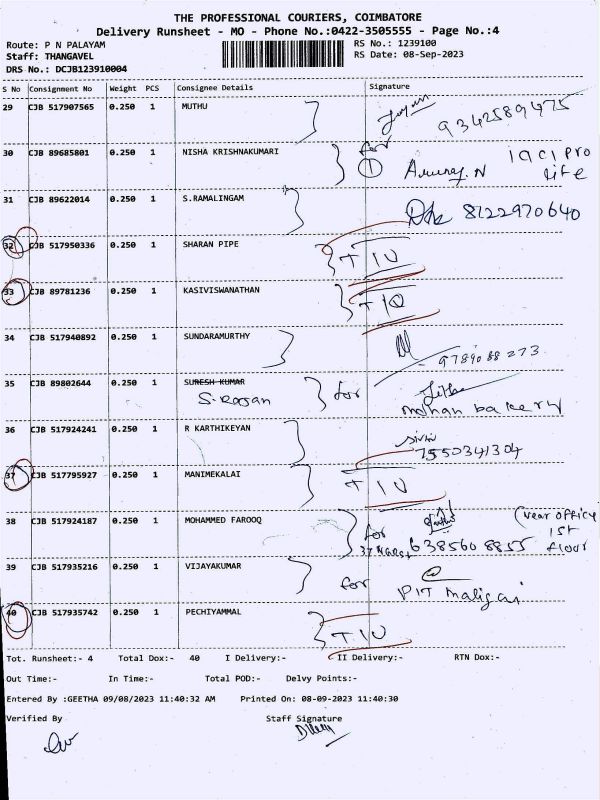 THE PROFESSIONAL COURIERS, COIMBATORE
Delivery Runsheet - MO - Phone No.:0422-3505555 - Page No.:4
Route: P N PALAYAM RS No.: 1239100
Staff: THANGAVEL RS Date: 08-Sep-2023
DRS No.: DCJB123910004
S No Consignment No Weight PCS Consignee Details Signature
29 CJB 517907565 0.250 1 MUTHU 9342589475
30 CJB 89685801 0.250 1 NISHA KRISHNAKUMARI for
1 N ICICI Pro
life
31 CJB 89622014 0.250 1 S.RAMALINGAM 8122970640
32 CJB 517950336 0.250 1 SHARAN PIPE TIU
33 CJB 89781236 0.250 1 KASIVISWANATHAN TIU
34 CJB 517940892 0.250 1 SUNDARAMURTHY 9789088273
35 CJB 89802644 0.250 1 SURESH KUMAR for
mohan bakery
36 CJB 517924241 0.250 1 R KARTHIKEYAN
7550341304
37 CJB 517795927 0.250 1 MANIMEKALAI TIU
38 CJB 517924187 0.250 1 MOHAMMED FAROOQ for (near office
6385608855 1st
floor
39 CJB 517935216 0.250 1 VIJAYAKUMAR for PIT maligai
40 CJB 517935742 0.250 1 PECHIYAMMAL TIU
Tot. Runsheet:- 4 Total Dox:- 40 I Delivery:- II Delivery:- RTN Dox:-
Out Time:- In Time:- Total POD:- Delvy Points:-
Entered By :GEETHA 09/08/2023 11:40:32 AM Printed On: 08-09-2023 11:40:30
Verified By Staff Signature